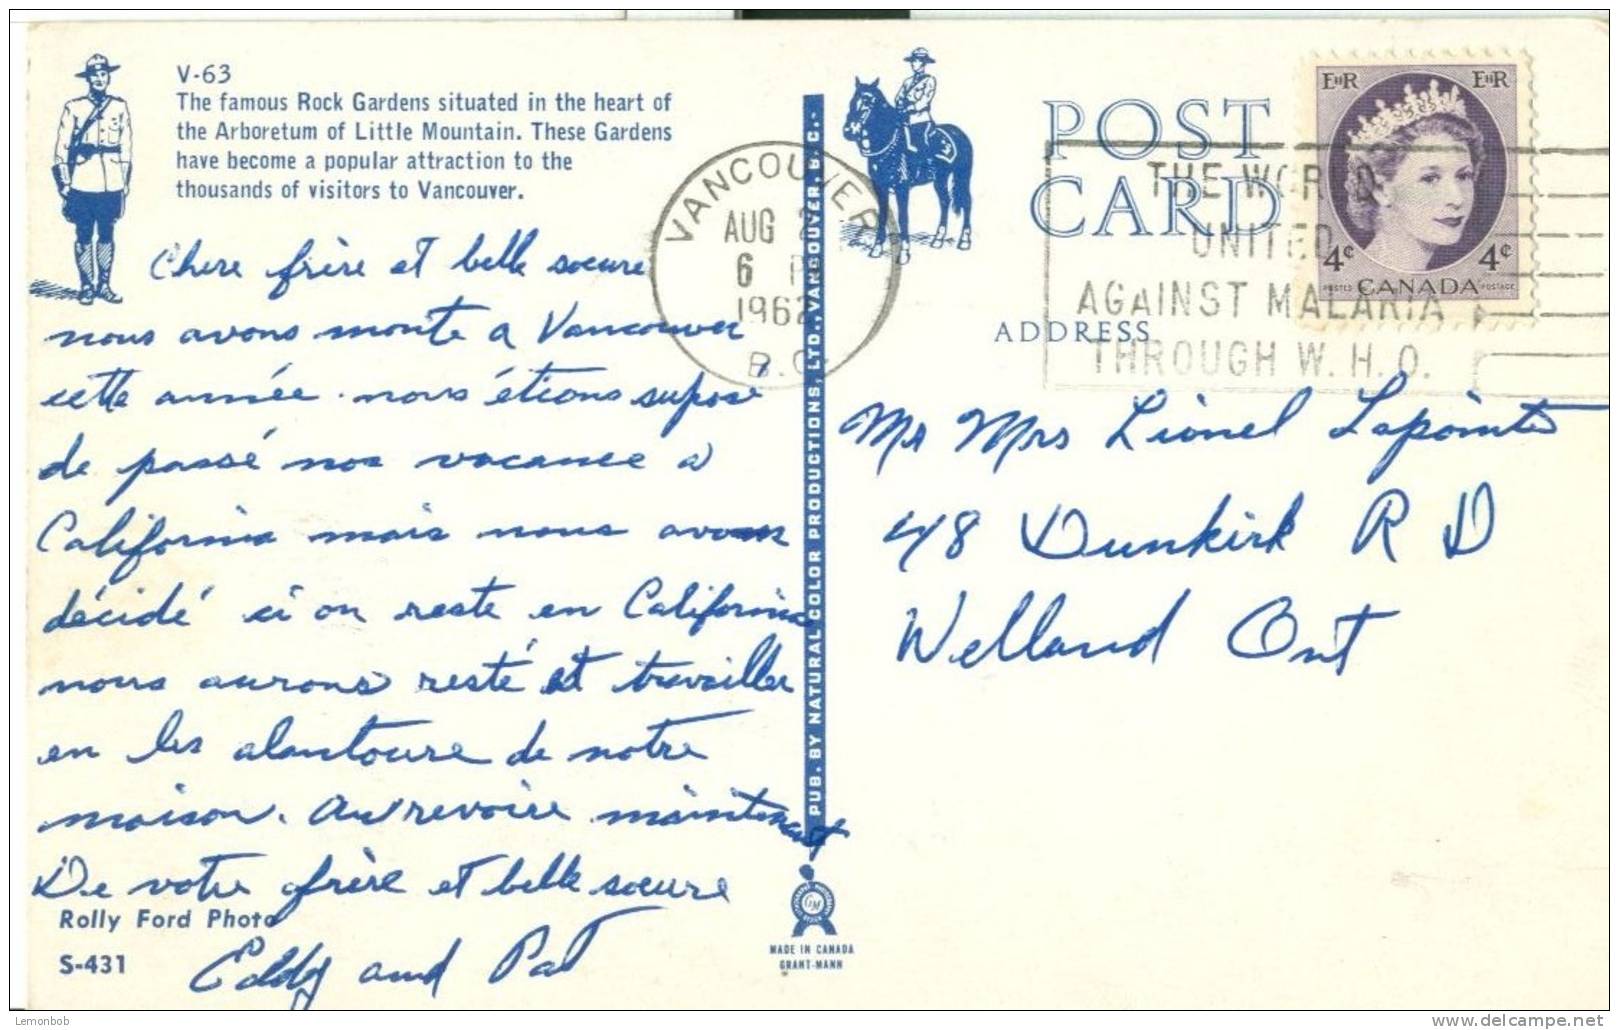 V-63
The famous Rock Gardens situated in the heart of
the Arboretum of Little Mountain. These Gardens
have become a popular attraction to the
thousands of visitors to Vancouver.
Chere frère et belle soeure
nous avons monte a Vancouver
cette année. nous étions suposé
de passé nos vacance a
California mais nous avons
décidé si on reste en California
nous aurons resté et travailler
en les alantoure de notre
maison. Aurevoire maintenant
De votre frère et belle soeure
Eddy and Pat
Rolly Ford Photo
S-431
VANCOUVER
AUG 2
6 P
1962
B.C.
PUB. BY NATURAL COLOR PRODUCTIONS, LTD. VANCOUVER, B.C.
GM
MADE IN CANADA
GRANT-MANN
POST
CARD
ADDRESS
THE WORLD
UNITED
AGAINST MALARIA
THROUGH W. H. O.
EIIR EIIR
4¢ 4¢
POSTES CANADA POSTAGE
Mr Mrs Lionel Lapointe
48 Dunkirk R D
Welland Ont
Lemonbob
www.delcampe.net